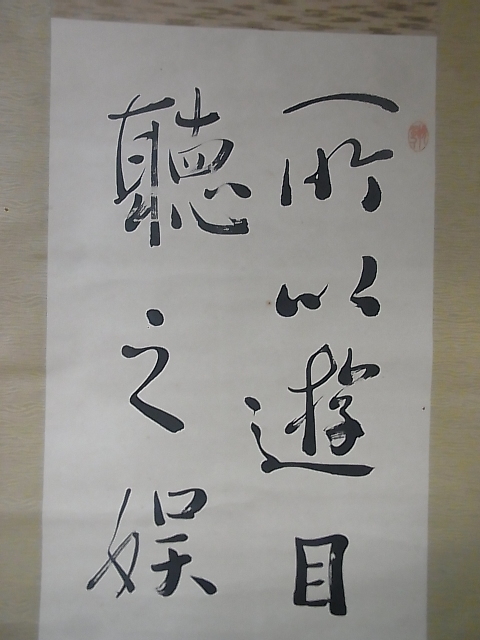 所以遊目
聽之娛